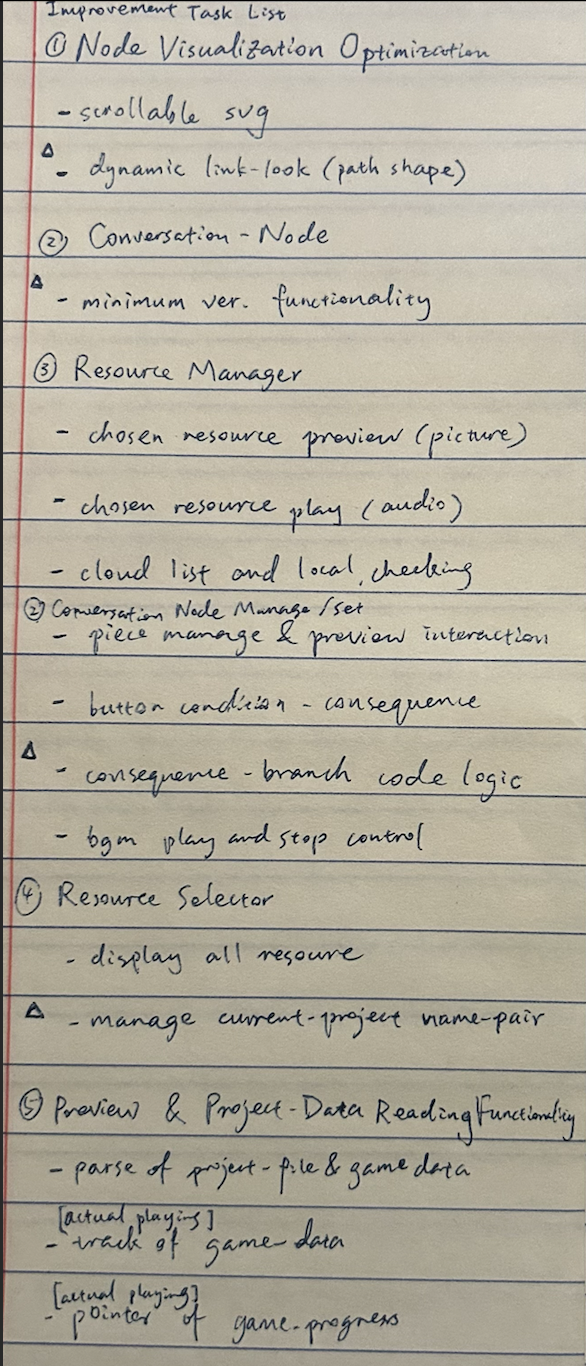 Improvement Task List
① Node Visualization Optimization
- scrollable svg
△ - dynamic link-look (path shape)
② Conversation - Node
△ - minimum ver. functionality
③ Resource Manager
- chosen resource preview (picture)
- chosen resource play (audio)
- cloud list and local checking
② Conversation Node Manage/Set
- piece manage & preview interaction
- button condition - consequence
△ - consequence - branch code logic
- bgm play and stop control
④ Resource Selector
- display all resoure
△ - manage current-project name-pair
⑤ Preview & Project-Data Reading Functionality
- parse of project-file & game data
[actual playing]
- track of game-data
[actual playing]
- pointer of game-progress